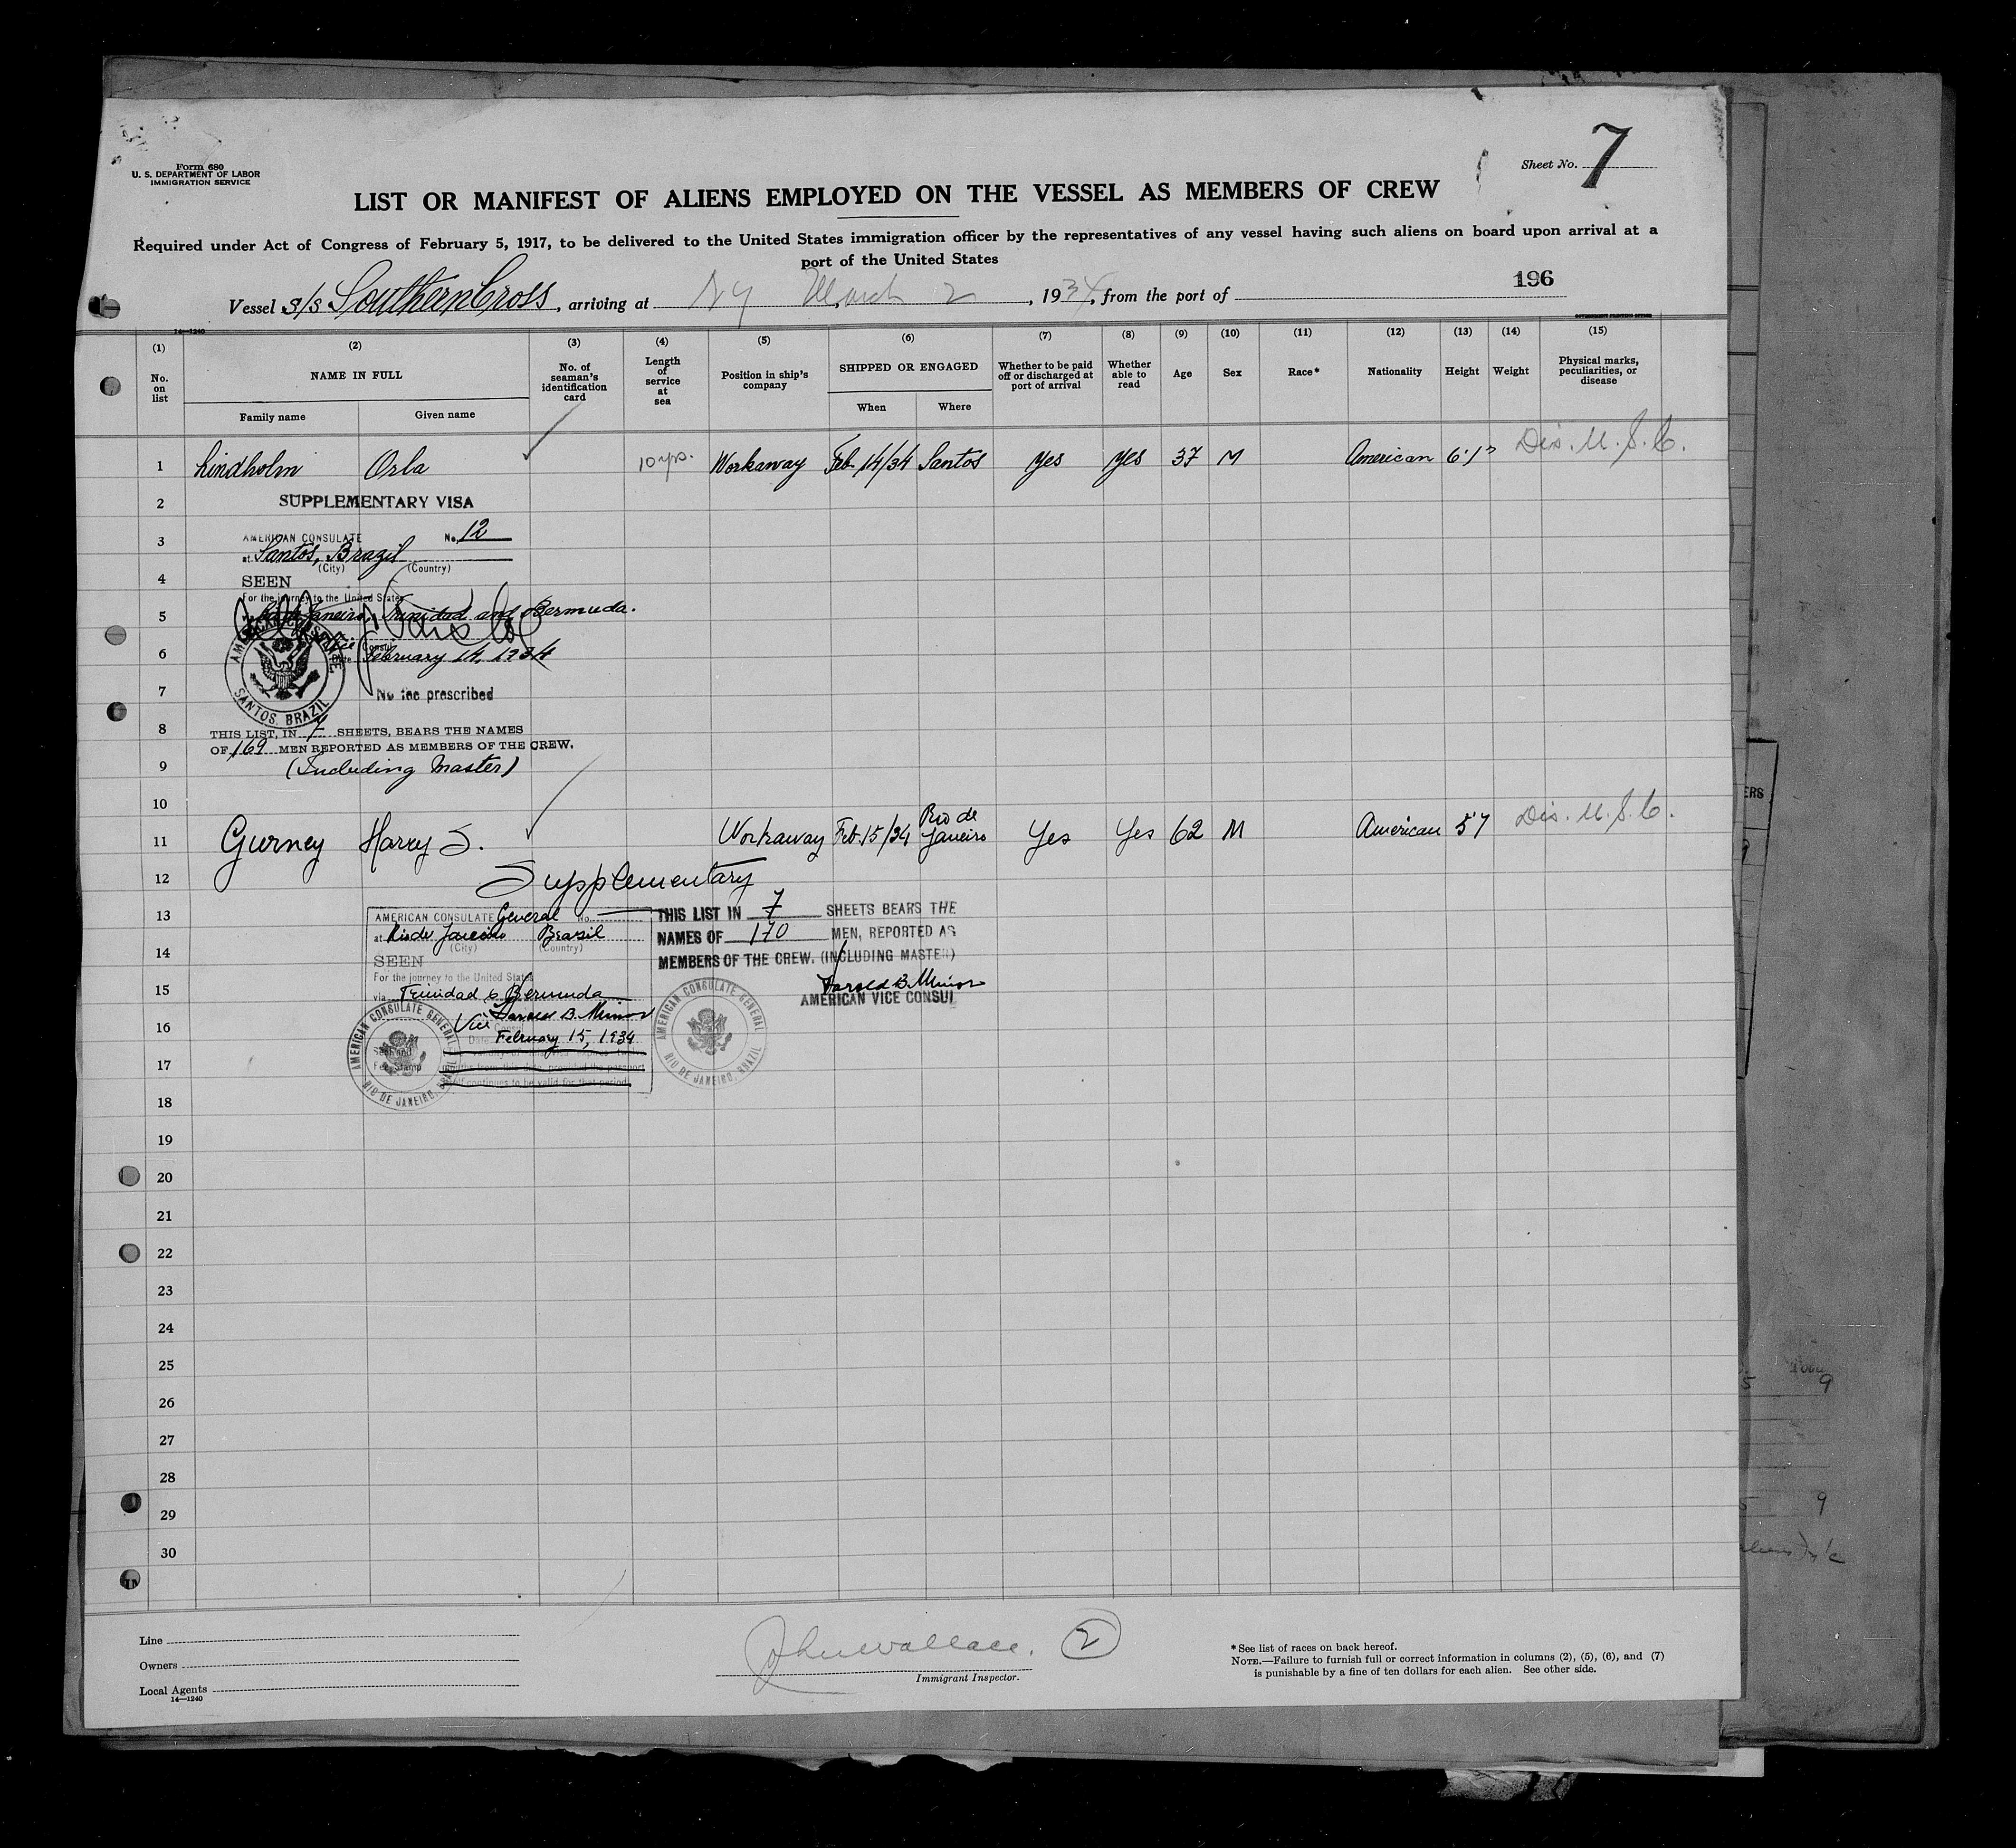 Form 680
U. S. DEPARTMENT OF LABOR
IMMIGRATION SERVICE
Sheet No. 7
LIST OR MANIFEST OF ALIENS EMPLOYED ON THE VESSEL AS MEMBERS OF CREW
Required under Act of Congress of February 5, 1917, to be delivered to the United States immigration officer by the representatives of any vessel having such aliens on board upon arrival at a
port of the United States
196
Vessel S/S Southern Cross, arriving at NY March 2, 1934, from the port of
14—1240
GOVERNMENT PRINTING OFFICE
(1) (2) (3) (4) (5) (6) (7) (8) (9) (10) (11) (12) (13) (14) (15)
No. on list
NAME IN FULL
Family name
Given name
No. of seaman's identification card
Length of service at sea
Position in ship's company
SHIPPED OR ENGAGED
When
Where
Whether to be paid off or discharged at port of arrival
Whether able to read
Age
Sex
Race*
Nationality
Height
Weight
Physical marks, peculiarities, or disease
1 Lindholm Orla 10 yrs. Workaway Feb 14/34 Santos Yes Yes 37 M American 6'1" Dis. U.S.C.
2 SUPPLEMENTARY VISA
3 AMERICAN CONSULATE No. 12
at Santos, Brazil
(City) (Country)
4 SEEN
For the journey to the United States
5 Rio de Janeiro, Trinidad and Bermuda.
6 Vice Consul
Date February 14, 1934
7 No fee prescribed
AMERICAN CONSULATE, SANTOS, BRAZIL
8 THIS LIST, IN 7 SHEETS, BEARS THE NAMES
OF 169 MEN REPORTED AS MEMBERS OF THE CREW.
9 (Including Master)
10
11 Gurney Harry S. Workaway Feb. 15/34 Rio de Janeiro Yes Yes 62 M American 5'7 Dis. U.S.C.
12 Supplementary
13 AMERICAN CONSULATE General No.
at Rio de Janeiro Brazil
(City) (Country)
14 SEEN
For the journey to the United States
15 via Trinidad & Bermuda
Harold B. Minor
16 Vice Consul
Date February 15, 1934
Seal and
17 Fee Stamp
months from this date, provided the passport
itself continues to be valid for that period.
AMERICAN CONSULATE GENERAL RIO DE JANEIRO, BRAZIL
THIS LIST IN 7 SHEETS BEARS THE
NAMES OF 170 MEN, REPORTED AS
MEMBERS OF THE CREW. (INCLUDING MASTER)
Harold B. Minor
AMERICAN VICE CONSUL
AMERICAN CONSULATE GENERAL RIO DE JANEIRO, BRAZIL
18
19
20
21
22
23
24
25
26
27
28
29
30
Line
Owners
Local Agents
14—1240
John Wallace. 2
Immigrant Inspector.
*See list of races on back hereof.
NOTE.—Failure to furnish full or correct information in columns (2), (5), (6), and (7)
is punishable by a fine of ten dollars for each alien. See other side.
ERS
9
5 9
9